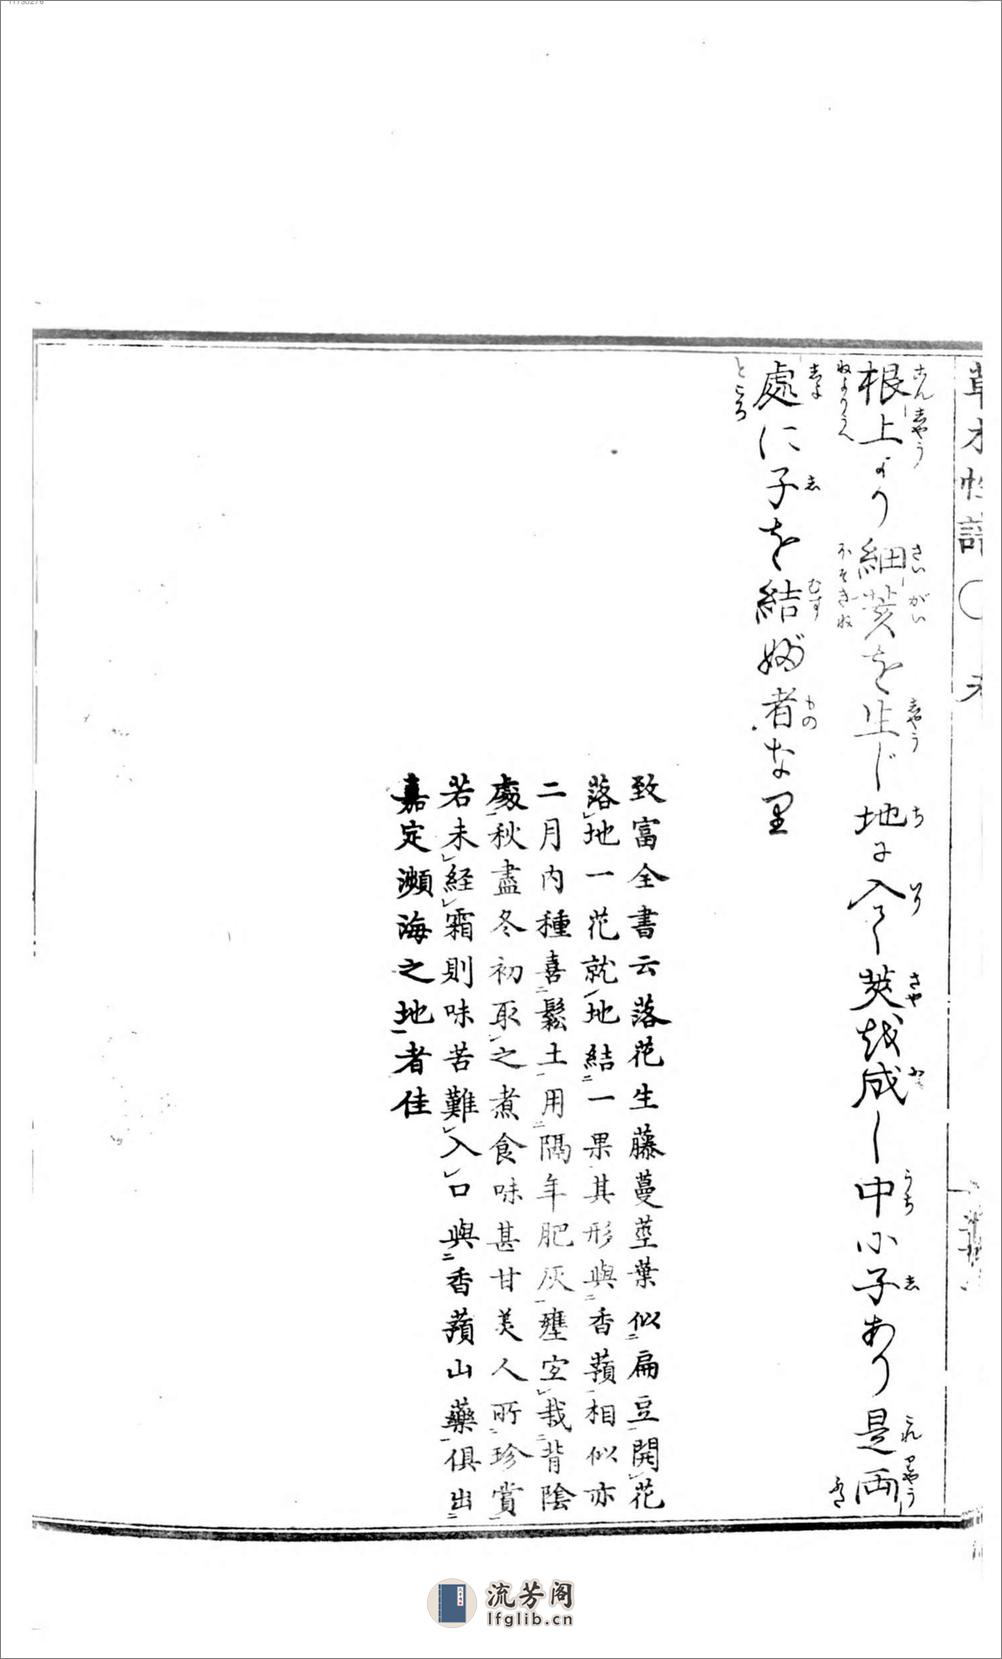 草木性譜
根上より細荄を生じ地に入て莢越成し中に子あり是両
處に子を結婦者な里
致富全書云落花生藤蔓莖葉似扁豆開花
落地一花就地結一果其形與香蕷相似亦
二月內種喜鬆土用隔年肥灰壅宜栽背陰
處秋盡冬初取之煮食味甚甘美人所珍賞
若未経霜則味苦難入口與香蕷山藥俱出
嘉定瀕海之地者佳
流芳阁
lfglib.cn